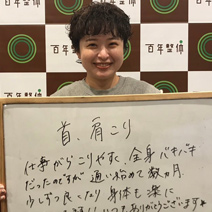 百年整体
百年整体
首、肩こり
仕事がらこりやすく、全身バキバキ
だったのですが 通い始めて数ヵ月.
少しずつ良くなり 身体も楽に
いつもありがとうございます